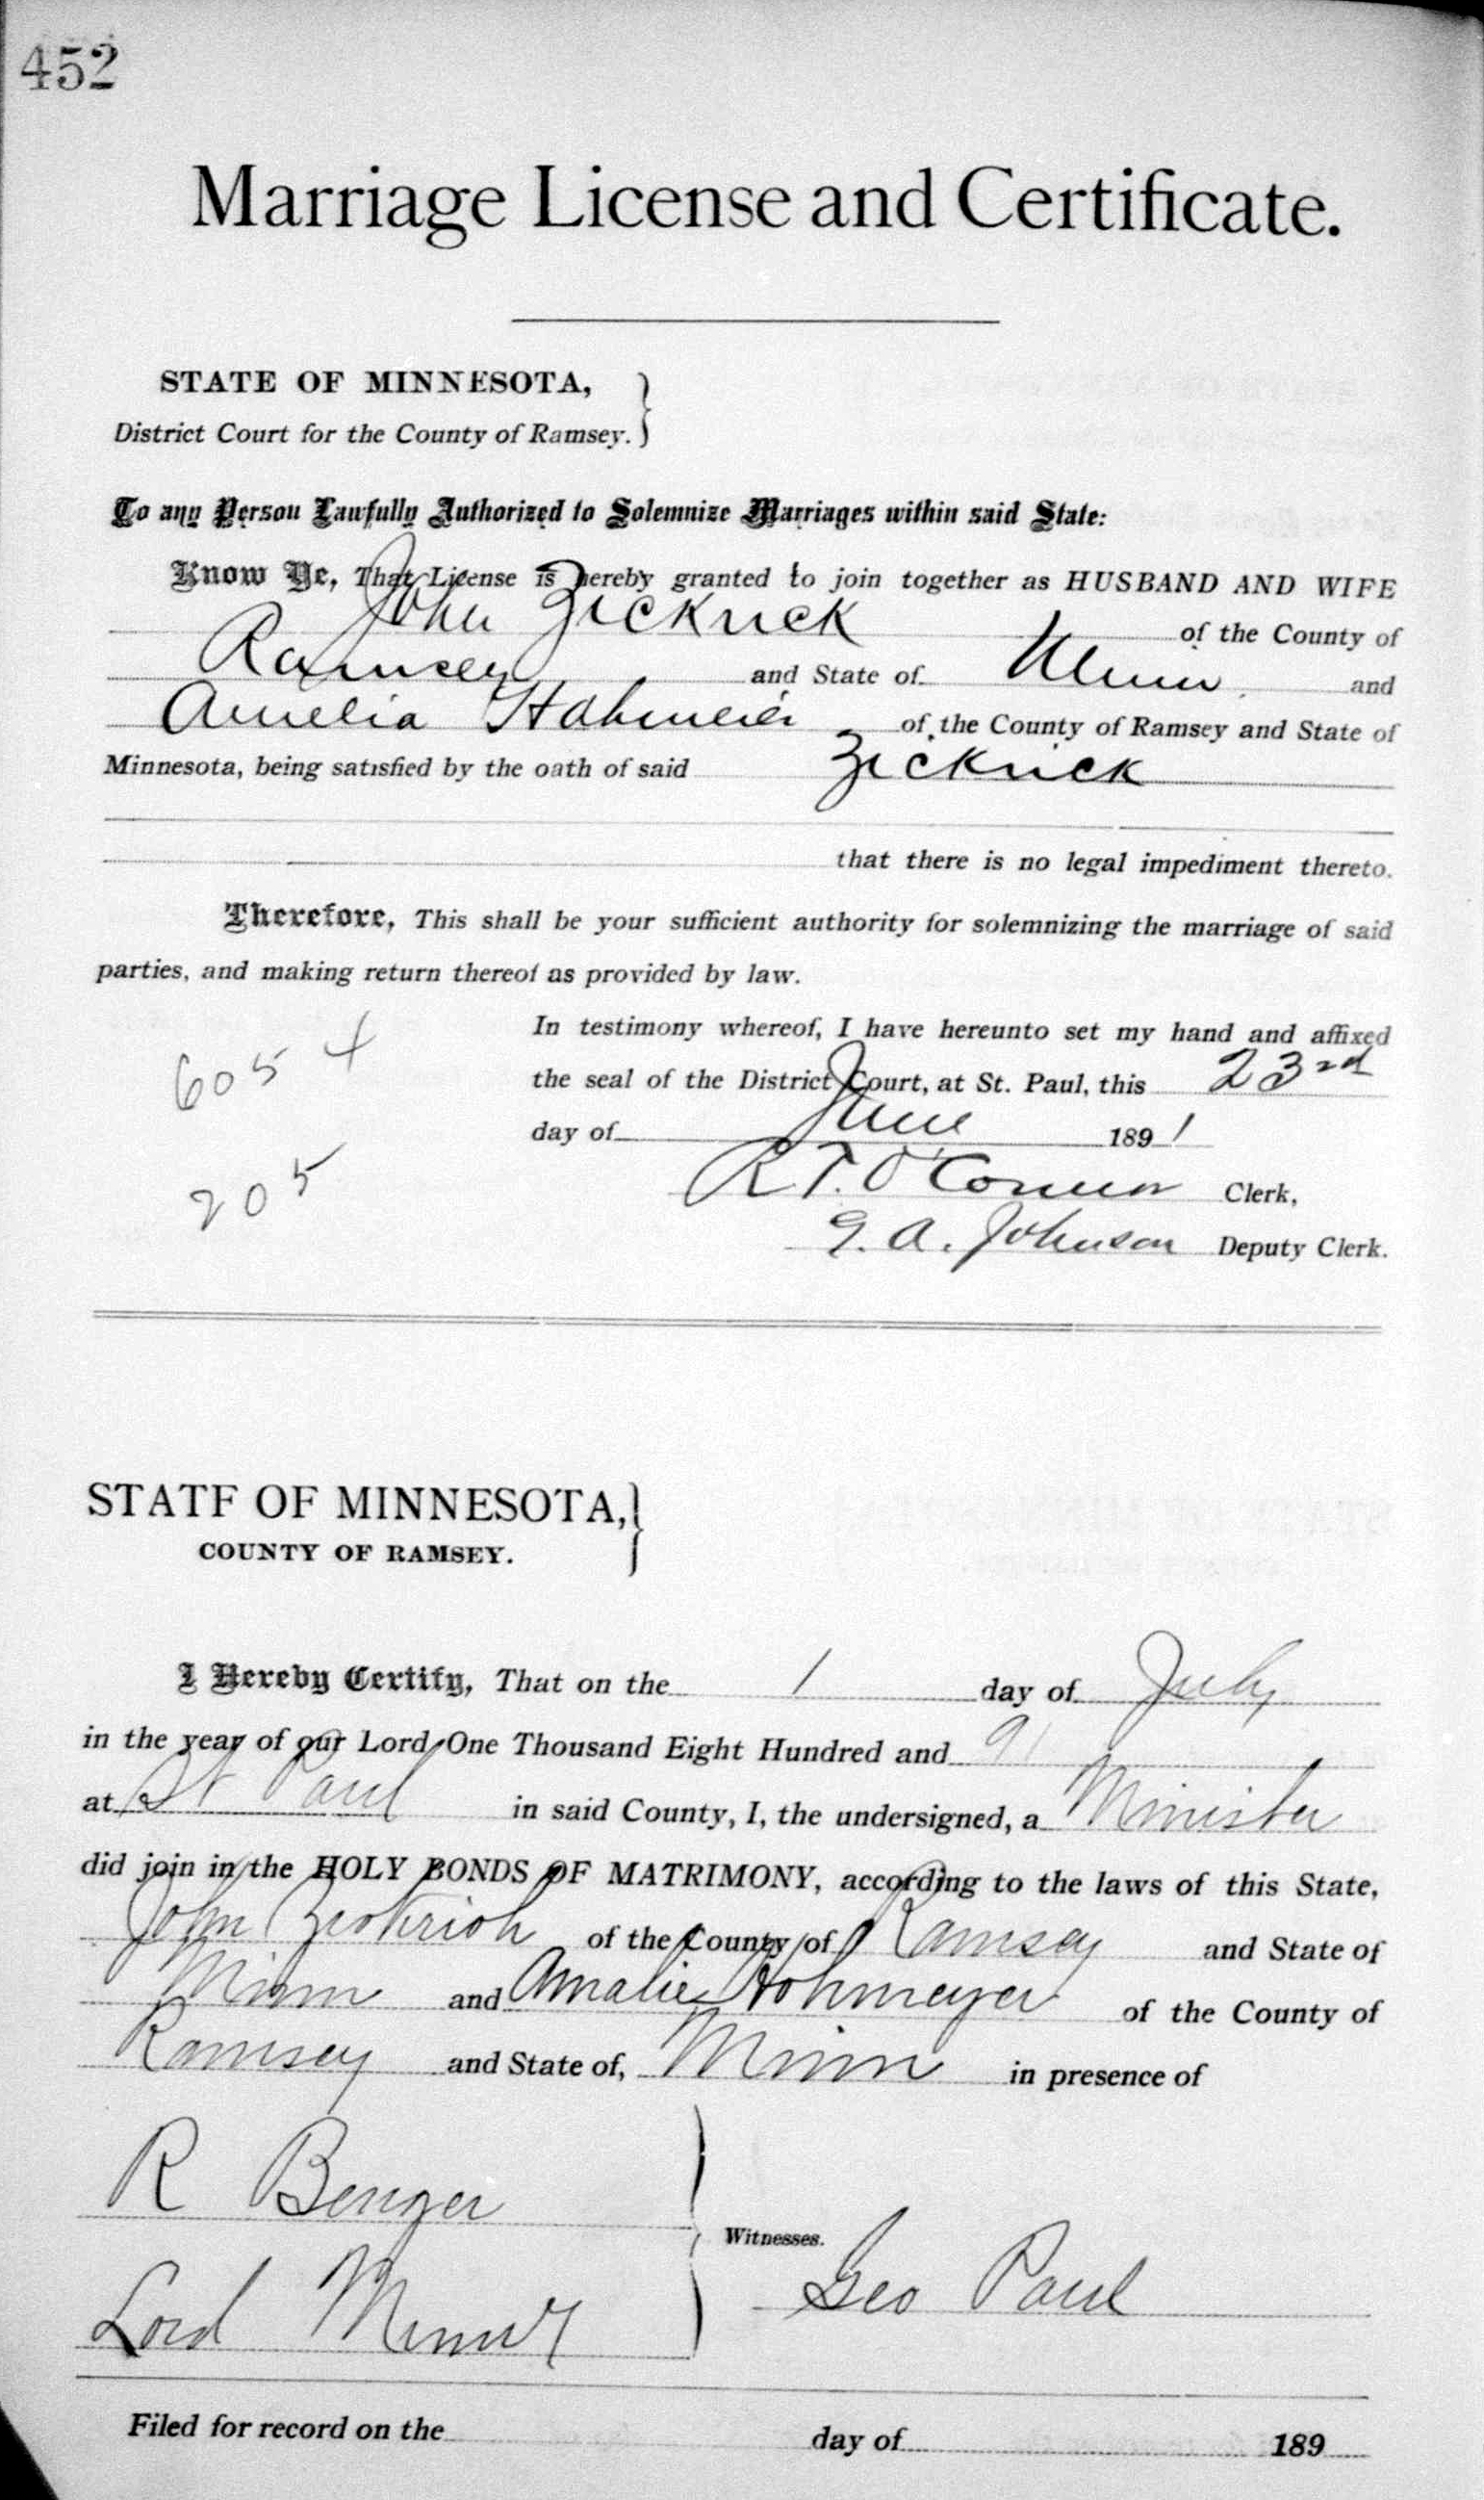 452
Marriage License and Certificate.
STATE OF MINNESOTA,
District Court for the County of Ramsey.
To any Person Lawfully Authorized to Solemnize Marriages within said State:
Know Ye, That License is hereby granted to join together as HUSBAND AND WIFE
John Zickrick of the County of
Ramsey and State of Minn. and
Amelia Hohmeier of the County of Ramsey and State of
Minnesota, being satisfied by the oath of said Zickrick
that there is no legal impediment thereto.
Therefore, This shall be your sufficient authority for solemnizing the marriage of said
parties, and making return thereof as provided by law.
In testimony whereof, I have hereunto set my hand and affixed
6054
the seal of the District Court, at St. Paul, this 23rd
day of June 1891
205
R T. O'Connor Clerk,
G. A. Johnson Deputy Clerk.
STATF OF MINNESOTA,
COUNTY OF RAMSEY.
I Hereby Certify, That on the 1 day of July
in the year of our Lord One Thousand Eight Hundred and 91
at St Paul in said County, I, the undersigned, a Minister
did join in the HOLY BONDS OF MATRIMONY, according to the laws of this State,
John Zickrick of the County of Ramsey and State of
Minn and Amalie Hohmeyer of the County of
Ramsey and State of, Minn in presence of
R Benger
Witnesses.
Geo Paul
Lord
Filed for record on the day of 189